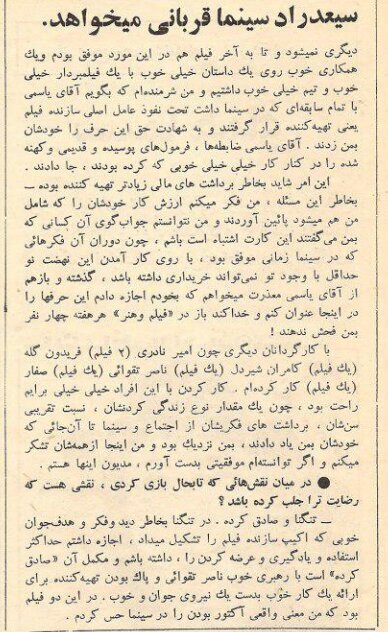 سیعدراد سینما قربانی میخواهد.
دیگری نمیشود و تا به آخر فیلم هم در این مورد موفق بودم ویك
همکاری خوب روی یك داستان خیلی خوب با یك فیلمبردار خیلی
خوب و تیم خیلی خوب داشتیم و من شرمنده‌ام که بگویم آقای یاسمی
با تمام سابقه‌ای که در سینما داشت تحت نفوذ عامل اصلی سازنده فیلم
یعنی تهیه‌کننده قرار گرفتند و به شهادت حق این حرف را خودشان
بمن زدند . آقای یاسمی ضابطه‌ها ، فرمول‌های پوسیده و قدیمی وکهنه
شده را در کنار کار خیلی خیلی خوبی که کرده بودند ، جا دادند .
این امر شاید بخاطر برداشت های مالی زیادتر تهیه کننده بوده ــ
بخاطر این مسئله ، من فکر میکنم ارزش کار خودشان را که شامل
من هم میشود پائین آوردند و من نتوانستم جواب‌گوی آن کسانی که
بمن می‌گفتند این کارت اشتباه است باشم ، چون دوران آن فکرهائی
که در سینما زمانی موفق بود ، با روی کار آمدن این نهضت نو
حداقل با وجود تو نمی‌تواند خریداری داشته باشد ، گذشته و بازهم
از آقای یاسمی معذرت میخواهم که بخودم اجازه دادم این حرفها را
در اینجا عنوان کنم و خداکند باز در «فیلم وهنر» هرهفته چهار نفر
بمن فحش ندهند !
با کارگردانان دیگری چون امیر نادری (۲ فیلم) فریدون گله
(یك فیلم) کامران شیردل (یك فیلم) ناصر تقوائی (یك فیلم) صفار
(یك فیلم) کار کرده‌ام . کار کردن با این افراد خیلی خیلی برایم
راحت بود ، چون یك مقدار نوع زندگی کردنشان ، نسبت تقریبی
سن‌شان ، برداشت های فکریشان از اجتماع و سینما تا آن‌جائی که
خودشان بمن یاد دادند ، بمن نزدیك بود و من اینجا ازهمه‌شان تشکر
میکنم و اگر توانسته‌ام موفقیتی بدست آورم ، مدیون اینها هستم .
● در میان نقش‌هائی که تابحال بازی کردی ، نقشی هست که
رضایت ترا جلب کرده باشد ؟
ــ تنگنا و صادق کرده . در تنگنا بخاطر دید وفکر و هدف‌جوان
خوبی که اکیپ سازنده فیلم را تشکیل میداد ، اجازه داشتم حداکثر
استفاده و یادگیری و عرضه کردن را ، داشته باشم و مکمل آن «صادق
کرده» است با رهبری خوب ناصر تقوائی و پاك بودن تهیه‌کننده برای
ارائه یك کار خوب بدست یك نیروی جوان و خوب . در این دو فیلم
بود که من معنی واقعی آکتور بودن را در سینما حس کردم .